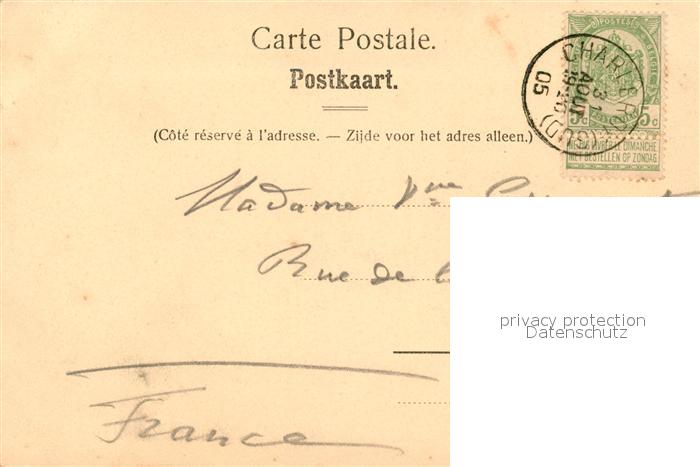 Carte Postale.
Postkaart.
(Côté réservé à l'adresse. — Zijde voor het adres alleen.)
POSTES BELGIQUE
5c 5c
NE PAS LIVRER LE DIMANCHE
NIET BESTELLEN OP ZONDAG
CHARLEROI (SUD)
31
AOUT
05
Madame Vve
Rue de
France
privacy protection
Datenschutz